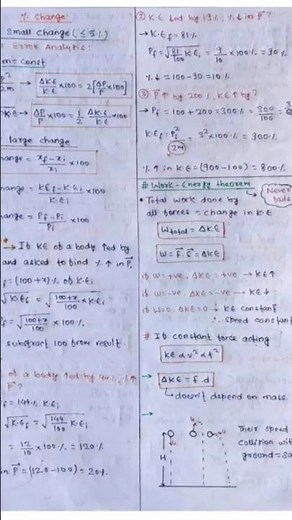 % Change
Small change (≤5%)
Error Analysis:
m = const
ΔK.E/K.E x100 = 2[ΔP/P x100]
ΔP/P x100 = 1/2 ΔK.E/K.E x100
large change
change = xf - xi/xi x100
change = KEf - K.Ei/K.Ei x100
change = Pf - Pi/Pi x100
If KE of a body ↑ed by
and asked to find % ↑ in P,
f = (100+x)% K.Ei
√K.Ef = √100+x/100 x K.Ei
f = √100+x/100 x 100%
subtract 100 from result
of a body ↑ed by 44%, % ↑
P?
f = 144% K.Ei
√K.Ef = √144/100 K.Ei
= 12/10 x 100% = 120%
in P = (120-100) = 20%
② K.E ↓ed by 19%, %↓ in P?
→ K.Ef = 81%
Pf = √81/100 K.Ei = 9/10 x 100% = 90%
% ↓ = 100-90 = 10%
③ P ↑ by 200%, K.E ↑ by?
→ Pf = 100+200 = 300% = 300/100
K.Ef = Pf²/2m = 3² x 100% = 900%
% ↑ in K.E = (900-100) = 800%
# Work-Energy theorem
Never
• Total work done by
all forces = change in K.E
Wtotal = ΔK.E
W = F.S = ΔK.E
if W = +ve, ΔK.E = +ve → KE↑
if W = -ve, ΔK.E = -ve → KE↓
if W = 0, ΔK.E = 0 → KE constant
∴ speed constant
# If constant force acting
KE ∝ v² ∝ t²
→ ΔK.E = F.d
doesn't depend on mass.
H
Their speed
collision with
ground = same